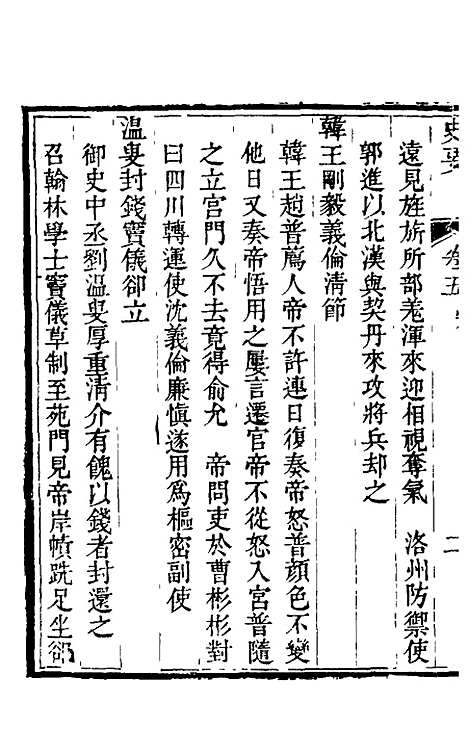 史要 卷五 二
遠見旌旂所部羗渾來迎相視奪氣　洛州防禦使
郭進以北漢與契丹來攻將兵却之
韓王剛毅義倫淸節
韓王趙普薦人帝不許連日復奏帝怒普顔色不變
他日又奏帝悟用之屢言遷官帝不從怒入宮普隨
之立宮門久不去竟得俞允　帝問吏於曹彬彬對
曰四川轉運使沈義倫廉愼遂用爲樞密副使
温叟封錢竇儀卻立
御史中丞劉温叟厚重淸介有餽以錢者封還之
召翰林學士竇儀草制至苑門見帝岸幘跣足坐卻